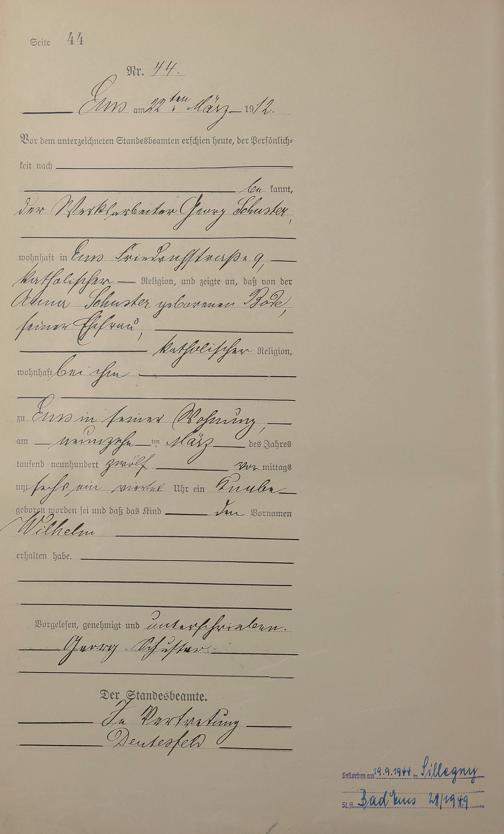 Seite 44
Nr. 44.
Ems am 22ten März 1912.
Vor dem unterzeichneten Standesbeamten erschien heute, der Persönlich-
keit nach
be kannt,
der Werksarbeiter Georg Schuster,
wohnhaft in Ems Friedrichstraße 9,
katholischer Religion, und zeigte an, daß von der
Anna Schuster geborenen Bode,
seiner Ehefrau,
katholischer Religion,
wohnhaft bei ihm
zu Ems in seiner Wohnung,
am neunzehn ten März des Jahres
tausend neunhundert zwölf vor mittags
um sechs ein viertel Uhr ein Knabe
geboren worden sei und daß das Kind den Vornamen
Wilhelm
erhalten habe.
Vorgelesen, genehmigt und unterschrieben.
Georg Schuster
Der Standesbeamte.
In Vertretung
Gestorben am 19.9.1944 in Sillegny
St.A. Bad Ems 28/1949